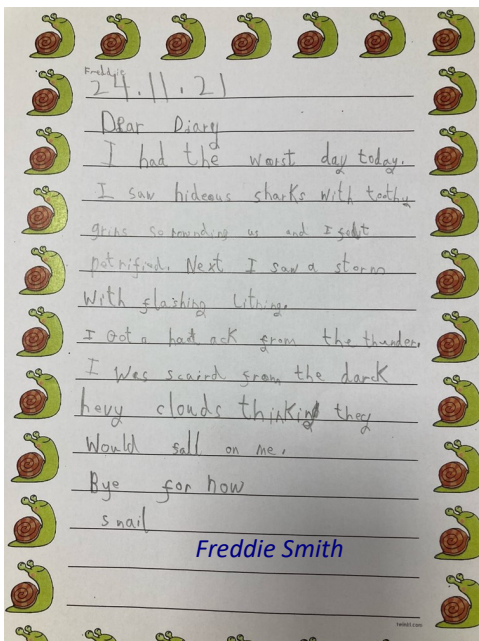 Freddie
24.11.21
Dear Diary
I had the worst day today.
I saw hideous sharks with toothy
grins sorrownding us and I felt
petrifind. Next I saw a storm
with flashing Litning.
I Got a hed ack from the thunder.
I Was scaird from the darck
hevy clouds thinking they
Would fall on me.
Bye for now
snail
Freddie Smith
twinkl.com